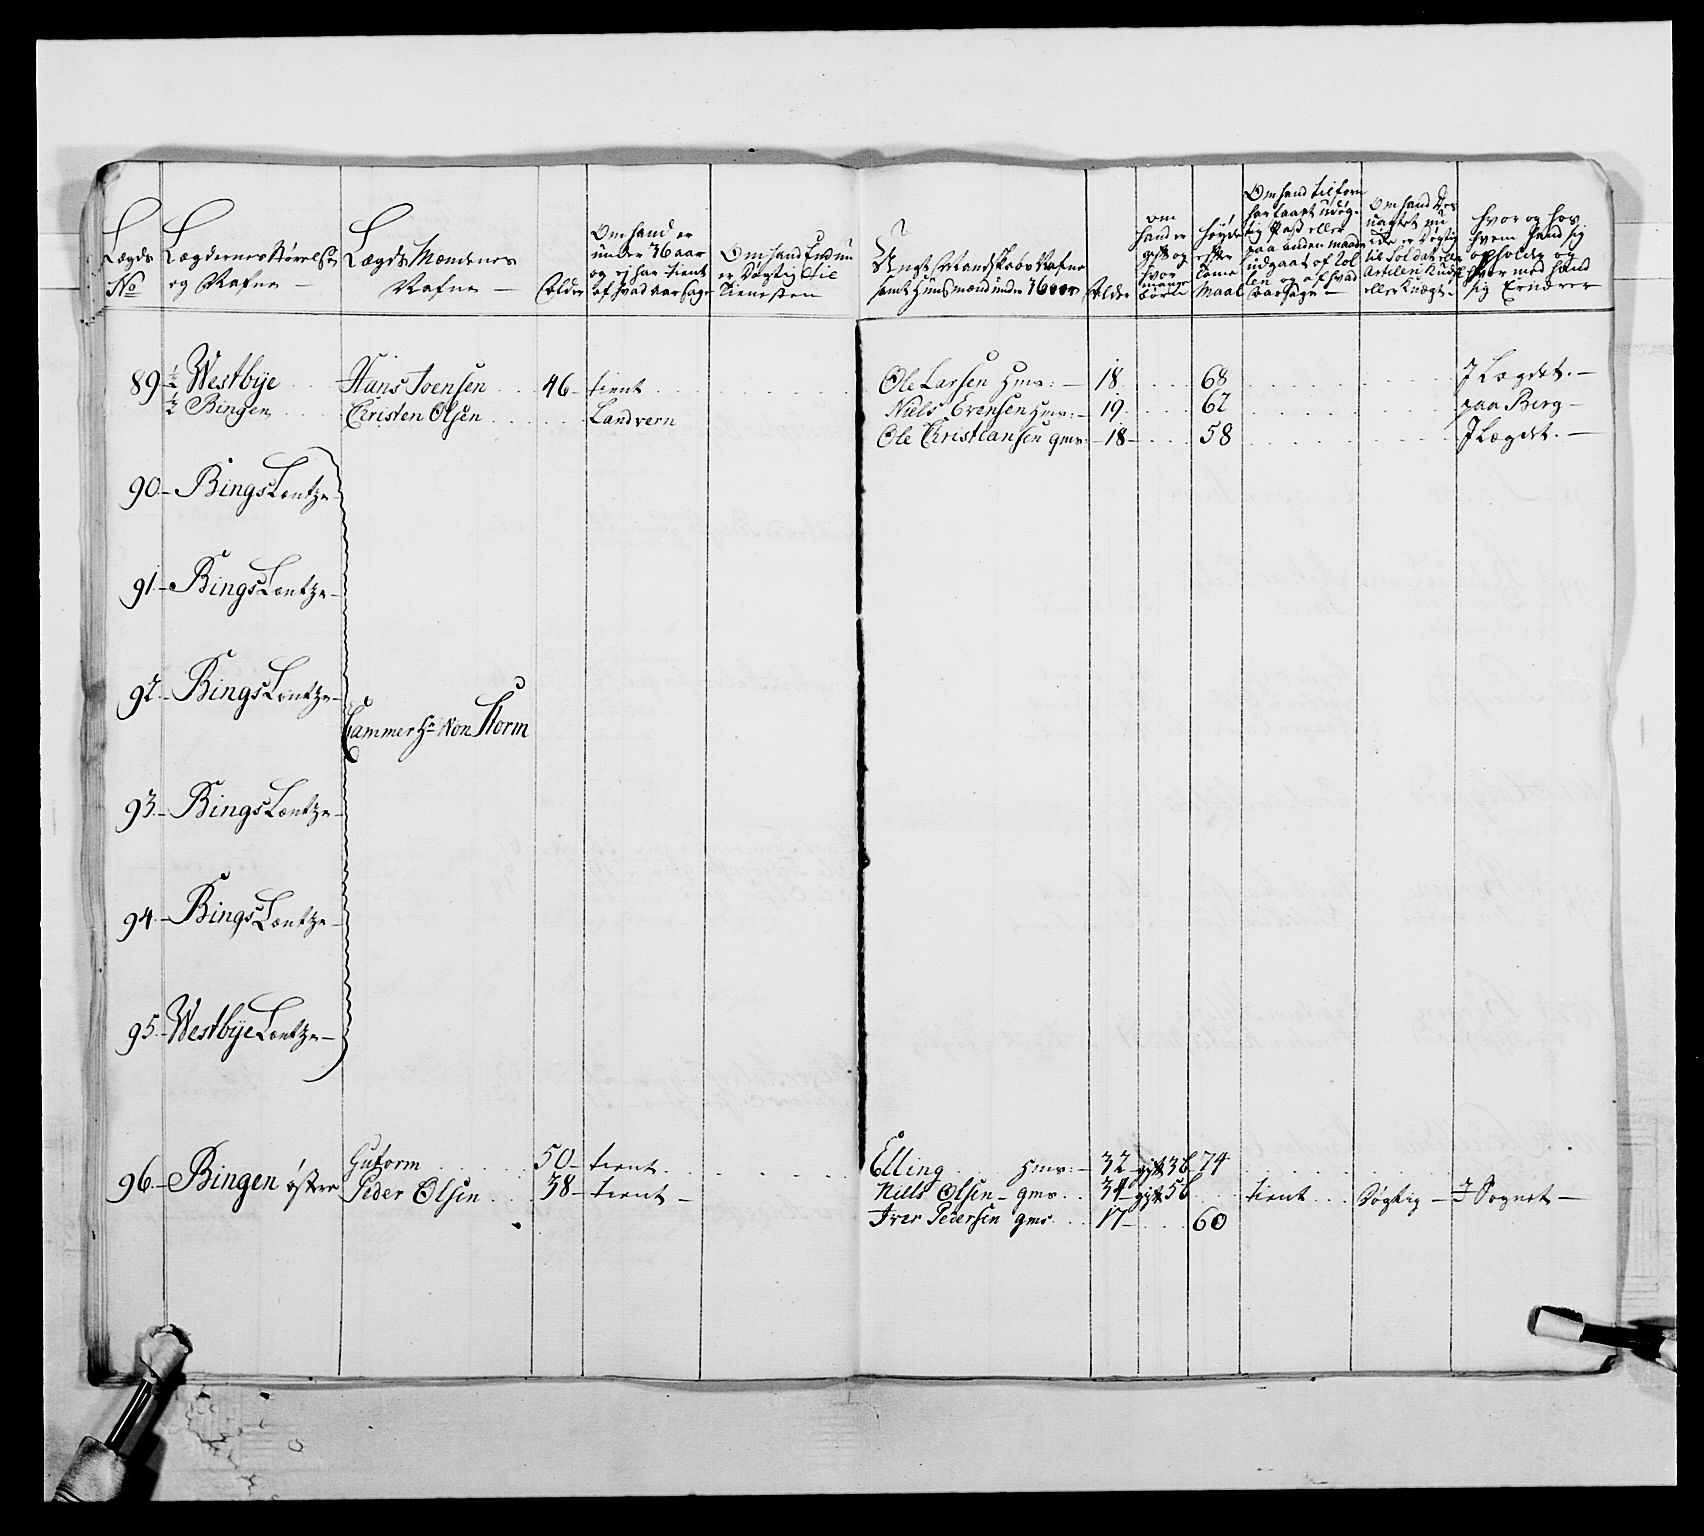 Lægds
No
Lægdernes Størrelse
og Nafne —
Lægds Mændenes
Nafne —
Alder
Om hand er
under 36 aar
og ej har tient
af hvad aarsage
Om hand endnu
er Døgtig til
Tienesten
Unge Mandskabs Nafne
samt Huusmænd under 36 aar
Alder
om
hand er
gift og
hvor
mange
børn
høyde
efter
tome
Maal
Om hand tilforn
har faaet udøg-
tig Pass eller
paa anden maade
udgaaet af Rol
len og af hvad
aarsage —
Om hand Des
uagtet nu
ide er Døgtig
til Soldat eller
eller Knægt.
hvor og hos
hvem hand sig
opholder og
hvor med hand
sig Ernærer
89 ½ Westbÿe Hans Joensen 46 — tient Ole Larsen Hms: — 18 68 J Lægdet. —
½ Bingen Christen Olsen Landvern Niels Evensen Hms: — 19 62 paa Berg —
Ole Christiansen gms. — 18 — 58 J Lægdet. —
90 — Bings Lentze —
91 — Bings Lentze —
92 — Bings Lentze —
Cammer Hr. Von Storm
93 — Bings Lentze —
94 — Bings Lentze —
95 — Westbÿe Lentze —
96 — Bingen østre Gutorm 50 — tient Elling Hms: — 32 — gift 3b — 74
Peder Olsen 38 — tient — Niels Olsen — gms. 34 — gift 5b tient Døgtig — J Sognet —
Iver Pedersen gms. 17 — 60